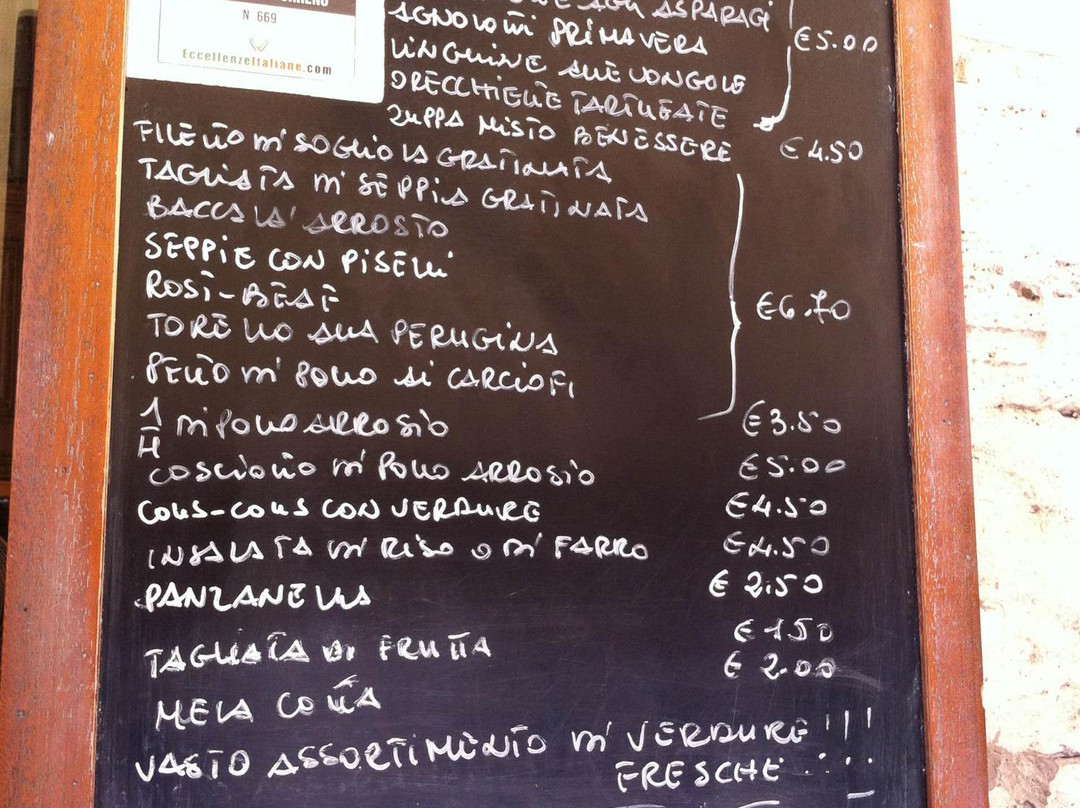 N 669
EccellenzeItaliane.com
AGLI ASPARAGI
AGNOLOTTI PRIMAVERA
€5.00
LINGUINE ALLE VONGOLE
ORECCHIETTE TARTUFATE
ZUPPA MISTO BENESSERE €4.50
FILETTO DI SOGLIOLA GRATINATA
TAGLIATA DI SEPPIA GRATINATA
BACCALA' ARROSTO
SEPPIE CON PISELLI
ROST-BEEF
€6.70
TORELLO ALLA PERUGINA
PETTO DI POLLO AI CARCIOFI
1/4 DI POLLO ARROSTO €3.50
COSCIOTTO DI POLLO ARROSTO €5.00
COUS-COUS CON VERDURE €4.50
INSALATA DI RISO O DI FARRO €4.50
PANZANELLA €2.50
TAGLIATA DI FRUTTA €1.50
€2.00
MELA COTTA
VASTO ASSORTIMENTO DI VERDURE!!!
FRESCHE